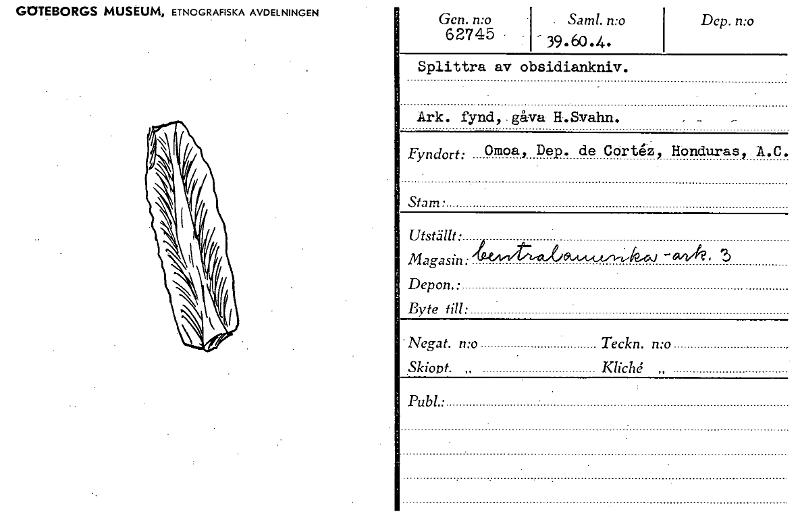 GÖTEBORGS MUSEUM, ETNOGRAFISKA AVDELNINGEN
Gen. n:o Saml. n:o Dep. n:o
62745 39.60.4.
Splittra av obsidiankniv.
Ark. fynd, gåva H.Svahn.
Fyndort: Omoa, Dep. de Cortéz, Honduras, A.C.
Stam:
Utställt:
Magasin: Centralamerika - ark. 3
Depon.:
Byte till:
Negat. n:o Teckn. n:o
Skiopt. „ Kliché „
Publ.: